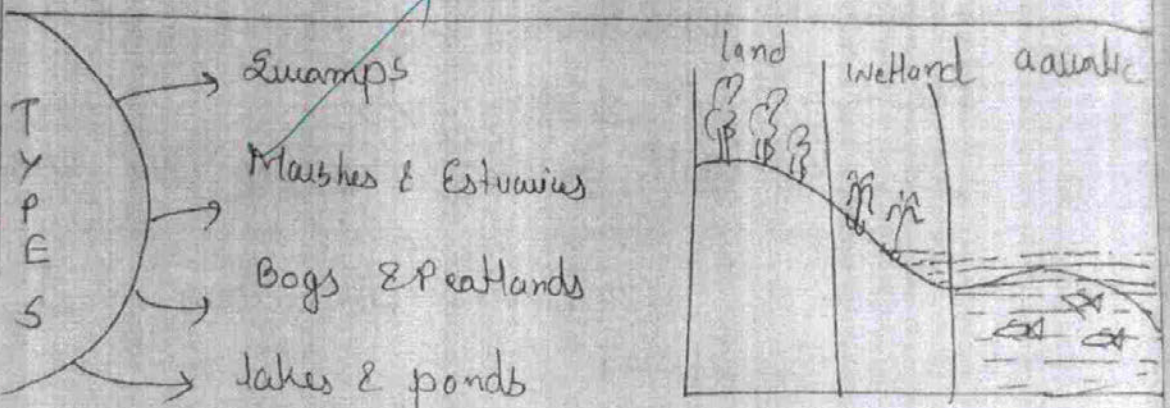 TYPES
Swamps
Marshes & Estuaries
Bogs & Peatlands
lakes & ponds
land
wetland
aquatic